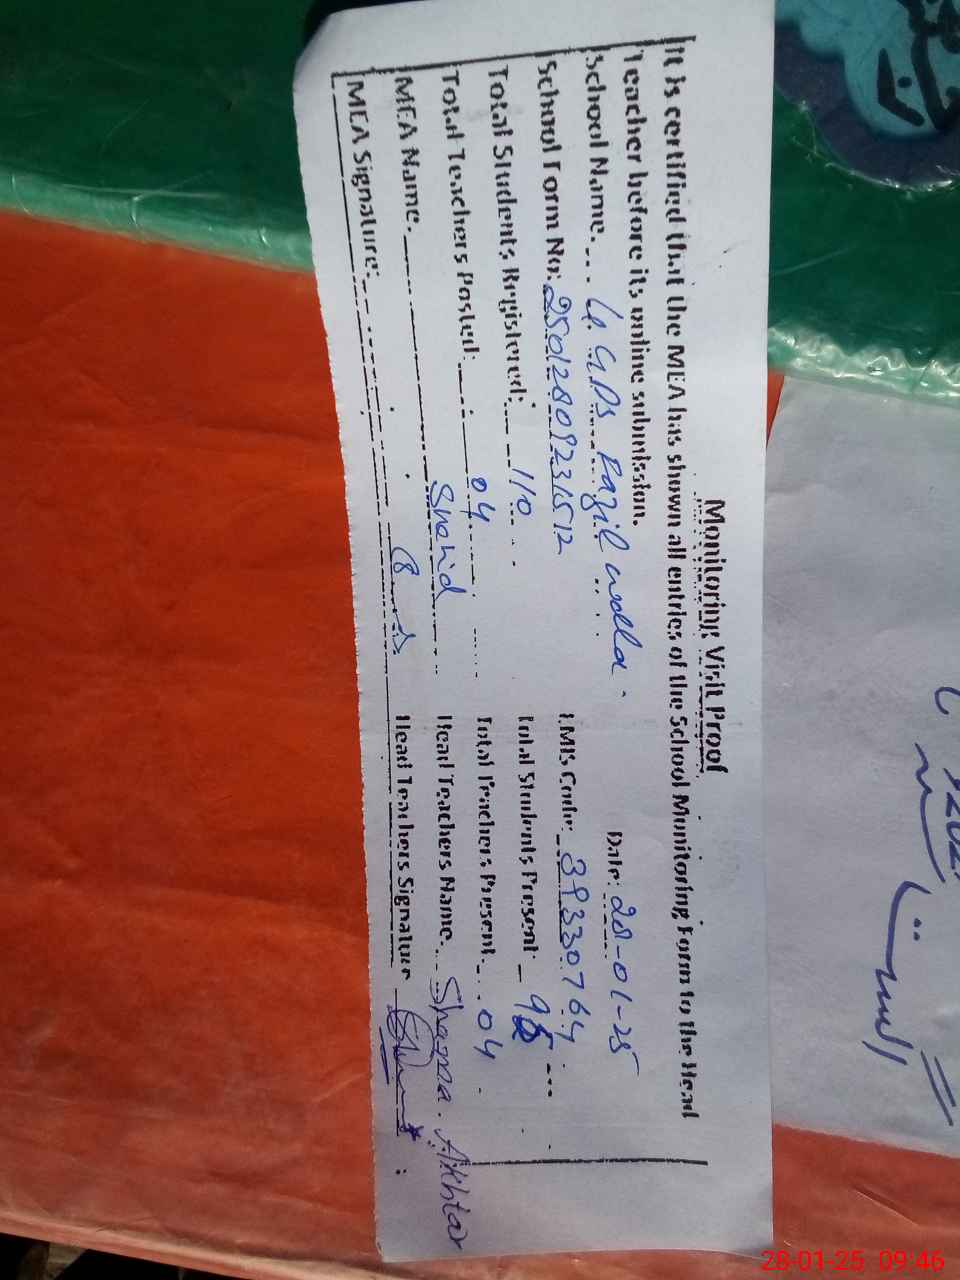 Monitoring Visit Proof
It is certified that the MEA has shown all entries of the School Monitoring Form to the Head
Teacher before its online submission.
Date: 28-01-25
School Name. GGPS Fazil walla.
School Form No: 25012809231512 EMIS Code: 39330764
Total Students Registered: 110 Total Students Present 95
Total Teachers Posted: 04 Total Teachers Present. 04
MEA Name. Shahid Head Teachers Name. Shagma. Akhtar
MEA Signature: Head Teachers Signature
28-01-25 09:46